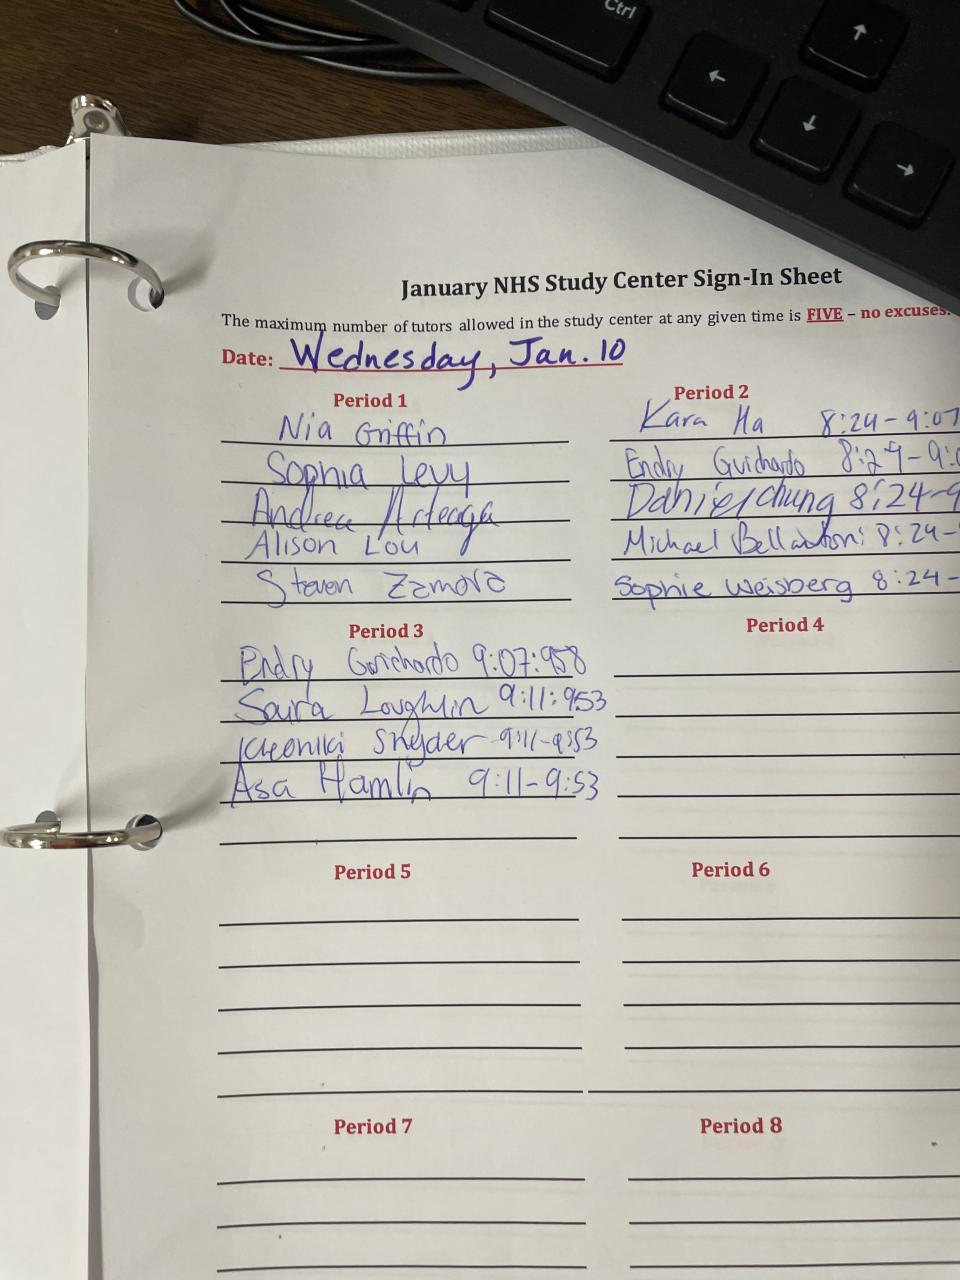 Ctrl
↑
←
↓
→
January NHS Study Center Sign-In Sheet
The maximum number of tutors allowed in the study center at any given time is FIVE – no excuses.
Date: Wednesday, Jan. 10
Period 1
Nia Griffin
Sophia Levy
Andrea Arteaga
Alison Lou
Steven Zamora
Period 2
Kara Ha 8:24-9:07
Endry Guichardo 8:24-9:0
Daniel Chung 8:24-9
Michael Bellantoni 8:24-
Sophie Weisberg 8:24-
Period 3
Endry Guichardo 9:07:958
Saira Loughlin 9:11:953
Kleoniki Snyder 9:11-9:53
Asa Hamlin 9:11-9:53
Period 4
Period 5
Period 6
Period 7
Period 8